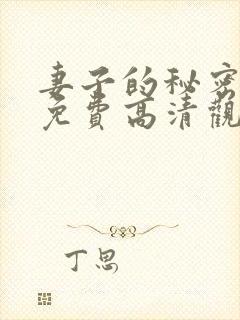 妻子的秘密
免費高清觀
丁思